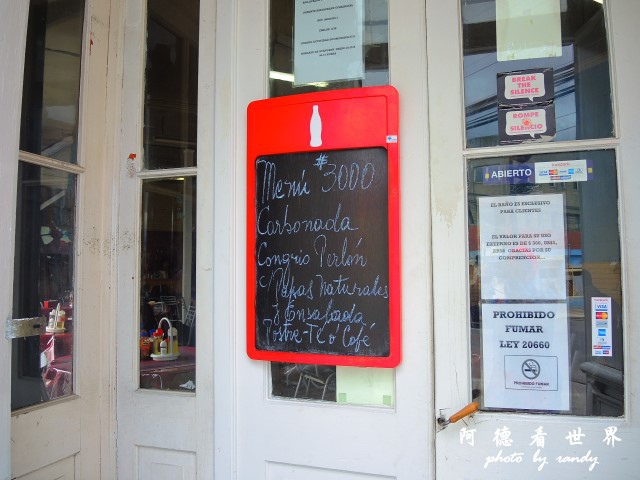 Menú $3000
Carbonada
Congrio Perlón
c/ Papas Naturales
y Ensalada
Postre - Té o Café
BREAK THE
SILENCE
ROMPE
EL SILENCIO
ABIERTO
EL BAÑO ES EXCLUSIVO
PARA CLIENTES
EL VALOR PARA SU USO
EXTERNO ES DE $ 300,
GRACIAS POR SU
COMPRENSION
PROHIBIDO
FUMAR
LEY 20660
PROHIBIDO FUMAR
VISA
阿德看世界
photo by randy